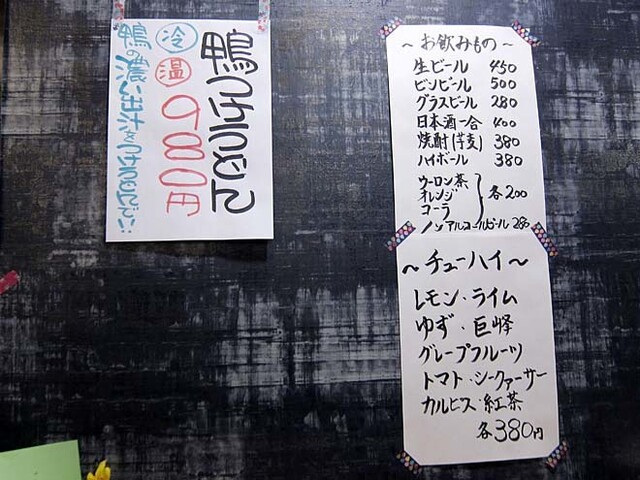 鴨つけうどん
冷 温 980円
鴨の濃い出汁をつけうどんで!!
～お飲みもの～
生ビール 450
ビンビール 500
グラスビール 280
日本酒一合 400
焼酎(芋麦) 380
ハイボール 380
ウーロン茶
オレンジ
コーラ
各200
ノンアルコールビール 280
～チューハイ～
レモン・ライム
ゆず・巨峰
グレープフルーツ
トマト・シークァーサー
カルピス・紅茶
各380円